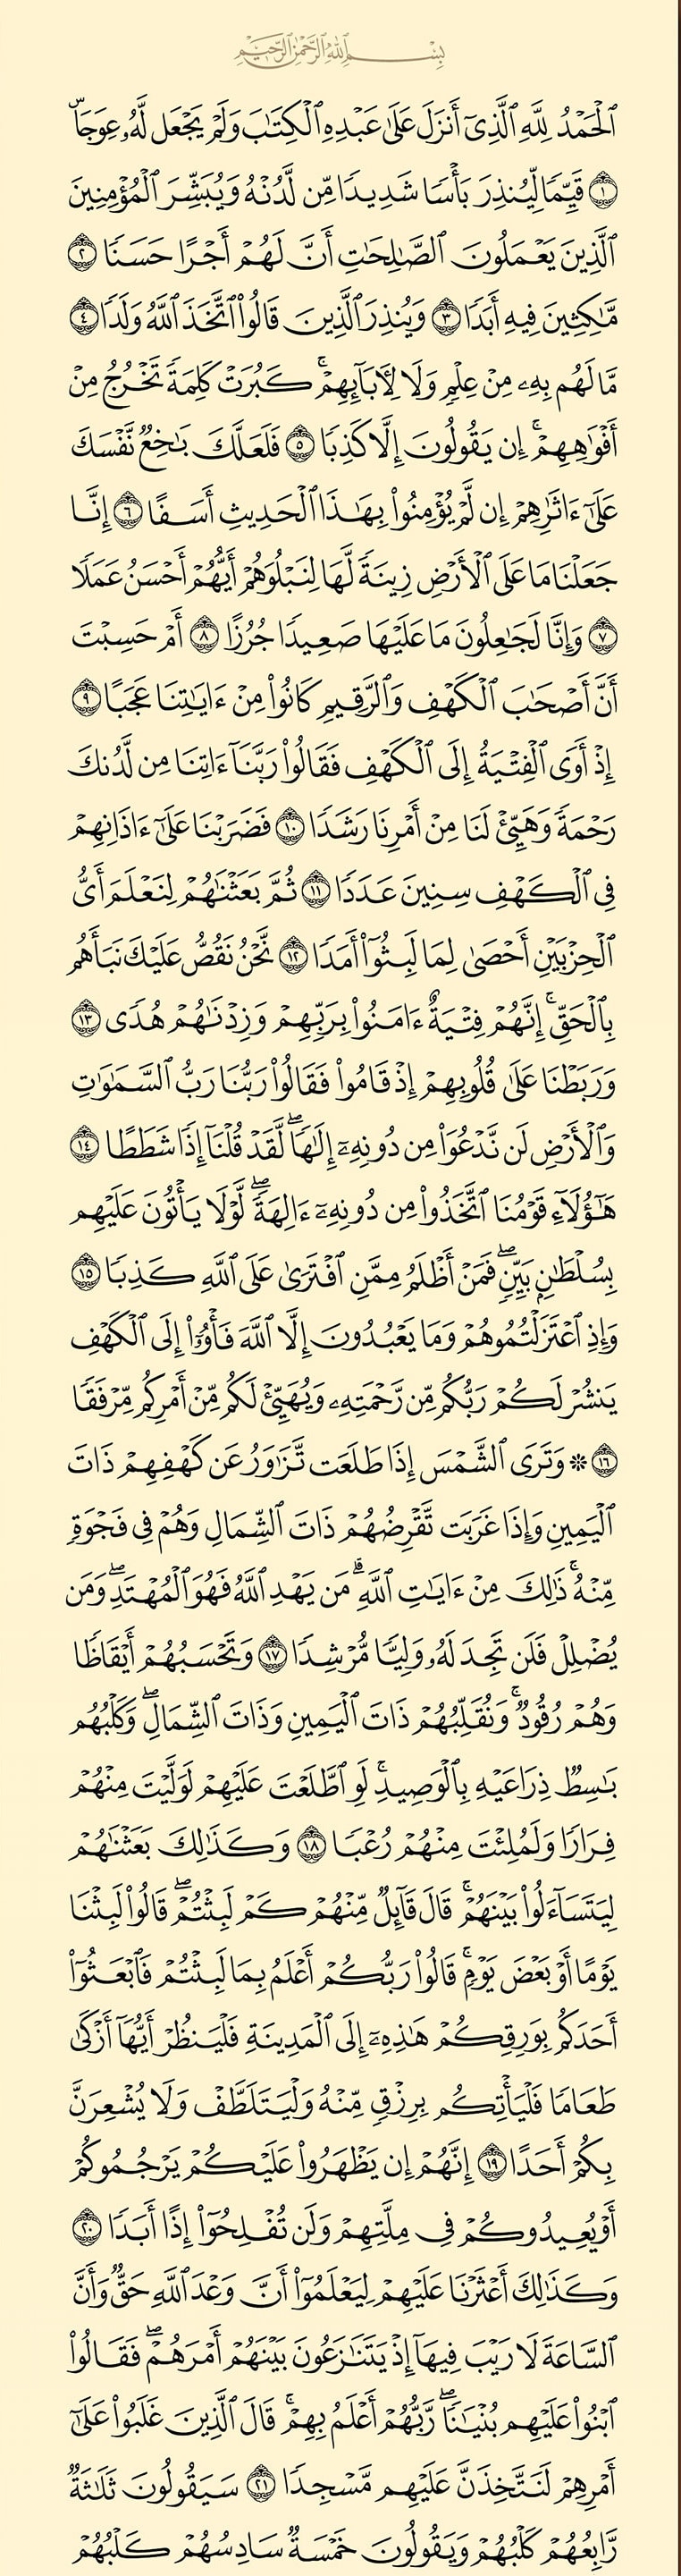 بِسْمِ ٱللَّهِ ٱلرَّحْمَٰنِ ٱلرَّحِيمِ
ٱلْحَمْدُ لِلَّهِ ٱلَّذِىٓ أَنزَلَ عَلَىٰ عَبْدِهِ ٱلْكِتَٰبَ وَلَمْ يَجْعَل لَّهُۥ عِوَجَاۜ
١ قَيِّمًا لِّيُنذِرَ بَأْسًا شَدِيدًا مِّن لَّدُنْهُ وَيُبَشِّرَ ٱلْمُؤْمِنِينَ
ٱلَّذِينَ يَعْمَلُونَ ٱلصَّٰلِحَٰتِ أَنَّ لَهُمْ أَجْرًا حَسَنًا ٢
مَّٰكِثِينَ فِيهِ أَبَدًا ٣ وَيُنذِرَ ٱلَّذِينَ قَالُوا۟ ٱتَّخَذَ ٱللَّهُ وَلَدًا ٤
مَّا لَهُم بِهِۦ مِنْ عِلْمٍ وَلَا لِـَٔابَآئِهِمْ ۚ كَبُرَتْ كَلِمَةً تَخْرُجُ مِنْ
أَفْوَٰهِهِمْ ۚ إِن يَقُولُونَ إِلَّا كَذِبًا ٥ فَلَعَلَّكَ بَٰخِعٌ نَّفْسَكَ
عَلَىٰٓ ءَاثَٰرِهِمْ إِن لَّمْ يُؤْمِنُوا۟ بِهَٰذَا ٱلْحَدِيثِ أَسَفًا ٦ إِنَّا
جَعَلْنَا مَا عَلَى ٱلْأَرْضِ زِينَةً لَّهَا لِنَبْلُوَهُمْ أَيُّهُمْ أَحْسَنُ عَمَلًا
٧ وَإِنَّا لَجَٰعِلُونَ مَا عَلَيْهَا صَعِيدًا جُرُزًا ٨ أَمْ حَسِبْتَ
أَنَّ أَصْحَٰبَ ٱلْكَهْفِ وَٱلرَّقِيمِ كَانُوا۟ مِنْ ءَايَٰتِنَا عَجَبًا ٩
إِذْ أَوَى ٱلْفِتْيَةُ إِلَى ٱلْكَهْفِ فَقَالُوا۟ رَبَّنَآ ءَاتِنَا مِن لَّدُنكَ
رَحْمَةً وَهَيِّئْ لَنَا مِنْ أَمْرِنَا رَشَدًا ١٠ فَضَرَبْنَا عَلَىٰٓ ءَاذَانِهِمْ
فِى ٱلْكَهْفِ سِنِينَ عَدَدًا ١١ ثُمَّ بَعَثْنَٰهُمْ لِنَعْلَمَ أَىُّ
ٱلْحِزْبَيْنِ أَحْصَىٰ لِمَا لَبِثُوٓا۟ أَمَدًا ١٢ نَّحْنُ نَقُصُّ عَلَيْكَ نَبَأَهُم
بِٱلْحَقِّ ۚ إِنَّهُمْ فِتْيَةٌ ءَامَنُوا۟ بِرَبِّهِمْ وَزِدْنَٰهُمْ هُدًى ١٣
وَرَبَطْنَا عَلَىٰ قُلُوبِهِمْ إِذْ قَامُوا۟ فَقَالُوا۟ رَبُّنَا رَبُّ ٱلسَّمَٰوَٰتِ
وَٱلْأَرْضِ لَن نَّدْعُوَا۟ مِن دُونِهِۦٓ إِلَٰهًا ۖ لَّقَدْ قُلْنَآ إِذًا شَطَطًا ١٤
هَٰٓؤُلَآءِ قَوْمُنَا ٱتَّخَذُوا۟ مِن دُونِهِۦٓ ءَالِهَةً ۖ لَّوْلَا يَأْتُونَ عَلَيْهِم
بِسُلْطَٰنٍۭ بَيِّنٍ ۖ فَمَنْ أَظْلَمُ مِمَّنِ ٱفْتَرَىٰ عَلَى ٱللَّهِ كَذِبًا ١٥
وَإِذِ ٱعْتَزَلْتُمُوهُمْ وَمَا يَعْبُدُونَ إِلَّا ٱللَّهَ فَأْوُۥٓا۟ إِلَى ٱلْكَهْفِ
يَنشُرْ لَكُمْ رَبُّكُم مِّن رَّحْمَتِهِۦ وَيُهَيِّئْ لَكُم مِّنْ أَمْرِكُم مِّرْفَقًا
١٦ ۞ وَتَرَى ٱلشَّمْسَ إِذَا طَلَعَت تَّزَٰوَرُ عَن كَهْفِهِمْ ذَاتَ
ٱلْيَمِينِ وَإِذَا غَرَبَت تَّقْرِضُهُمْ ذَاتَ ٱلشِّمَالِ وَهُمْ فِى فَجْوَةٍ
مِّنْهُ ۚ ذَٰلِكَ مِنْ ءَايَٰتِ ٱللَّهِ ۗ مَن يَهْدِ ٱللَّهُ فَهُوَ ٱلْمُهْتَدِ ۖ وَمَن
يُضْلِلْ فَلَن تَجِدَ لَهُۥ وَلِيًّا مُّرْشِدًا ١٧ وَتَحْسَبُهُمْ أَيْقَاظًا
وَهُمْ رُقُودٌ ۚ وَنُقَلِّبُهُمْ ذَاتَ ٱلْيَمِينِ وَذَاتَ ٱلشِّمَالِ ۖ وَكَلْبُهُم
بَٰسِطٌ ذِرَاعَيْهِ بِٱلْوَصِيدِ ۚ لَوِ ٱطَّلَعْتَ عَلَيْهِمْ لَوَلَّيْتَ مِنْهُمْ
فِرَارًا وَلَمُلِئْتَ مِنْهُمْ رُعْبًا ١٨ وَكَذَٰلِكَ بَعَثْنَٰهُمْ
لِيَتَسَآءَلُوا۟ بَيْنَهُمْ ۚ قَالَ قَآئِلٌ مِّنْهُمْ كَمْ لَبِثْتُمْ ۖ قَالُوا۟ لَبِثْنَا
يَوْمًا أَوْ بَعْضَ يَوْمٍ ۚ قَالُوا۟ رَبُّكُمْ أَعْلَمُ بِمَا لَبِثْتُمْ فَٱبْعَثُوٓا۟
أَحَدَكُم بِوَرِقِكُمْ هَٰذِهِۦٓ إِلَى ٱلْمَدِينَةِ فَلْيَنظُرْ أَيُّهَآ أَزْكَىٰ
طَعَامًا فَلْيَأْتِكُم بِرِزْقٍ مِّنْهُ وَلْيَتَلَطَّفْ وَلَا يُشْعِرَنَّ
بِكُمْ أَحَدًا ١٩ إِنَّهُمْ إِن يَظْهَرُوا۟ عَلَيْكُمْ يَرْجُمُوكُمْ
أَوْ يُعِيدُوكُمْ فِى مِلَّتِهِمْ وَلَن تُفْلِحُوٓا۟ إِذًا أَبَدًا ٢٠
وَكَذَٰلِكَ أَعْثَرْنَا عَلَيْهِمْ لِيَعْلَمُوٓا۟ أَنَّ وَعْدَ ٱللَّهِ حَقٌّ وَأَنَّ
ٱلسَّاعَةَ لَا رَيْبَ فِيهَآ إِذْ يَتَنَٰزَعُونَ بَيْنَهُمْ أَمْرَهُمْ ۖ فَقَالُوا۟
ٱبْنُوا۟ عَلَيْهِم بُنْيَٰنًا ۖ رَّبُّهُمْ أَعْلَمُ بِهِمْ ۚ قَالَ ٱلَّذِينَ غَلَبُوا۟ عَلَىٰٓ
أَمْرِهِمْ لَنَتَّخِذَنَّ عَلَيْهِم مَّسْجِدًا ٢١ سَيَقُولُونَ ثَلَٰثَةٌ
رَّابِعُهُمْ كَلْبُهُمْ وَيَقُولُونَ خَمْسَةٌ سَادِسُهُمْ كَلْبُهُمْ